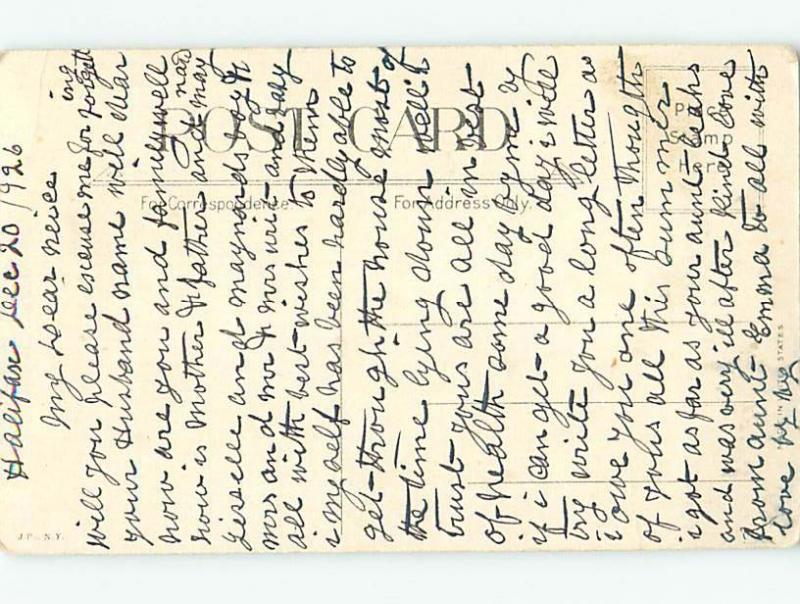 Halifax Dec 20 1926
My Dear Neice
will you please excuse me for forgetting
your Husband name well dear
how are you and family well
how is Mother & father and
and maynards boy &
mrs and mr & mrs and
all with best wishes to them
i myself has been hardly able to
get through the house most of
the time lying down well i
trust yous are all in best
of health some day
if i can get a good day i will
try write you a long letter as
i owe you one often thought
of yous all this summer
i got as far as your aunt Leahs
and was very ill after kind love
from aunt Emma to all with
love
POST CARD
For Correspondence
For Address Only.
J.P. N.Y.
IN UNITED STATES